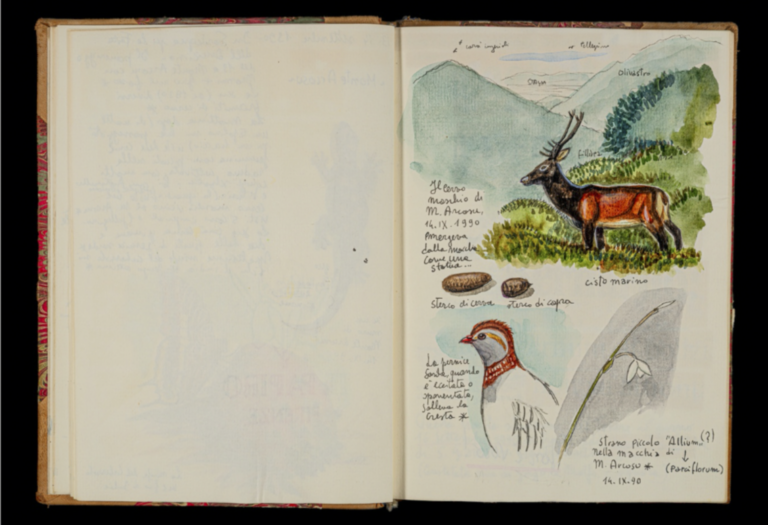 Oliastru
fillirea
Il cervo
maschio di
M. Arcosu,
14.IX.1990
Emergeva
dalla macchia
come una
statua...
cisto marino
sterco di cervo sterco di capra
La pernice
sarda, quando
è eccitata o
spaventata,
solleva la
cresta *
strano piccolo "Allium" (?)
nella macchia di ↓
M. Arcosu * (parviflorum)
14.IX.90